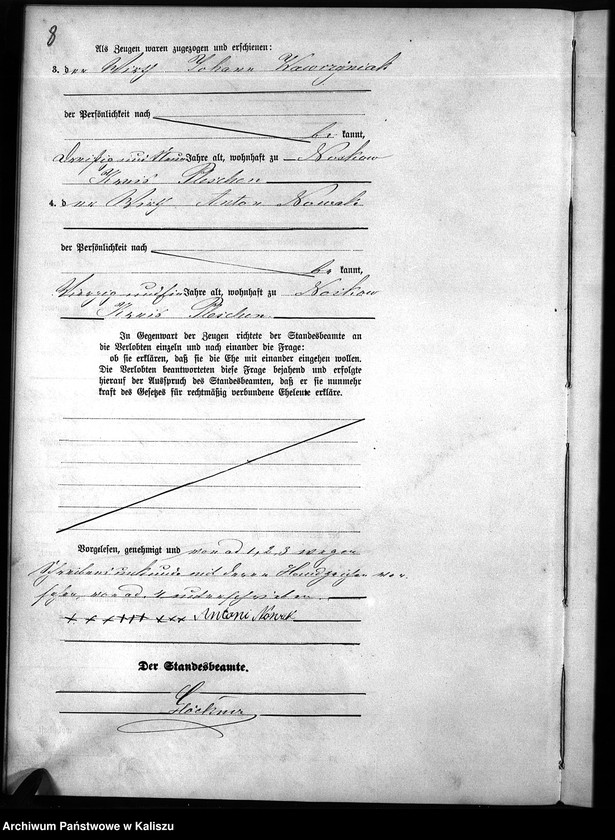 8
Als Zeugen waren zugezogen und erschienen:
3. der Wirth Johann Kawczyniak
der Persönlichkeit nach
be kannt,
dreißig und Jahre alt, wohnhaft zu Noskow
Kreis Pleschen
4. der Wirth Anton Nowak
der Persönlichkeit nach
be kannt,
vierzig und Jahre alt, wohnhaft zu Noskow
Kreis Pleschen
In Gegenwart der Zeugen richtete der Standesbeamte an
die Verlobten einzeln und nach einander die Frage:
ob sie erklären, daß sie die Ehe mit einander eingehen wollen.
Die Verlobten beantworteten diese Frage bejahend und erfolgte
hierauf der Ausspruch des Standesbeamten, daß er sie nunmehr
kraft des Gesetzes für rechtmäßig verbundene Eheleute erkläre.
Vorgelesen, genehmigt und von ad 1, 2, 3 wegen
Schreibensunkunde mit deren Handzeichen ver-
sehen, von ad. 4 unterschrieben.
+ + + +++ +++ Antoni Nowak
Der Standesbeamte.
Glöckner
Archiwum Państwowe w Kaliszu